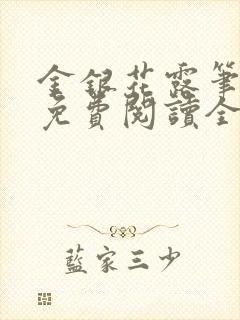 金銀花露筆
免費閱讀全
藍家三少